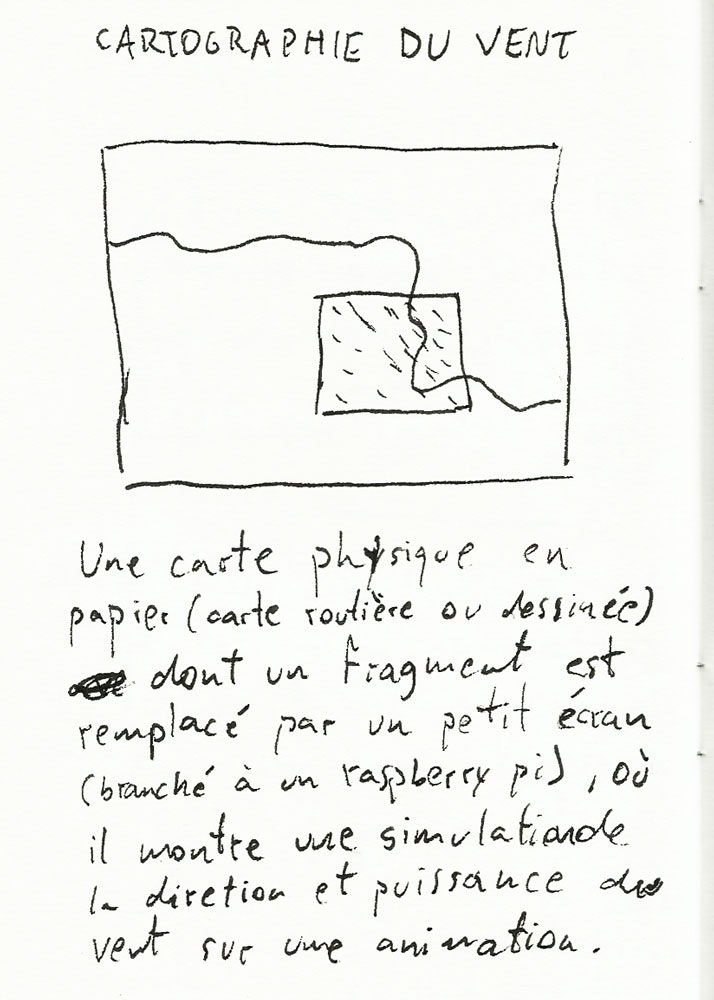 CARTOGRAPHIE DU VENT
Une carte physique en
papier (carte routière ou dessinée)
dont un fragment est
remplacé par un petit écran
(branché à un raspberry pi), où
il montre une simulation de
la diretion et puissance du
vent sur une animation.